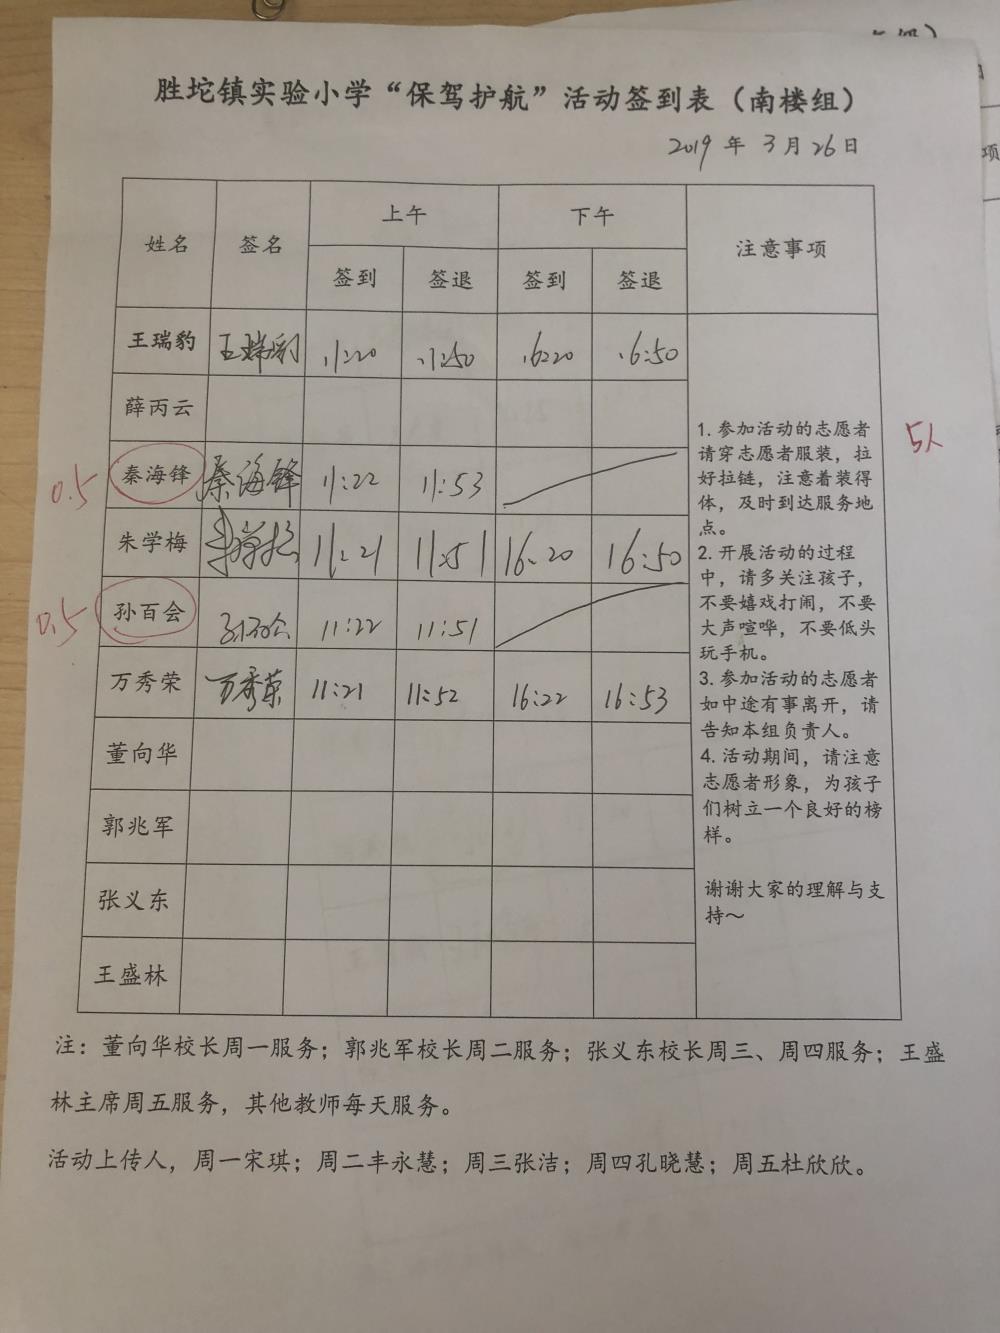 胜坨镇实验小学“保驾护航”活动签到表（南楼组）
2019 年 3 月 26 日
姓名 签名 上午 下午 注意事项
签到 签退 签到 签退
王瑞豹 王瑞豹 11:20 11:50 16:20 16:50
薛丙云
0.5 秦海锋 秦海锋 11:22 11:53
朱学梅 朱学梅 11:21 11:51 16:20 16:50
0.5 孙百会 孙百会 11:22 11:51
万秀荣 万秀荣 11:21 11:52 16:22 16:53
董向华
郭兆军
张义东
王盛林
1. 参加活动的志愿者
请穿志愿者服装，拉
好拉链，注意着装得
体，及时到达服务地
点。
2. 开展活动的过程
中，请多关注孩子，
不要嬉戏打闹，不要
大声喧哗，不要低头
玩手机。
3. 参加活动的志愿者
如中途有事离开，请
告知本组负责人。
4. 活动期间，请注意
志愿者形象，为孩子
们树立一个良好的榜
样。
谢谢大家的理解与支
持～
5人
注：董向华校长周一服务；郭兆军校长周二服务；张义东校长周三、周四服务；王盛
林主席周五服务，其他教师每天服务。
活动上传人，周一宋琪；周二丰永慧；周三张洁；周四孔晓慧；周五杜欣欣。
项